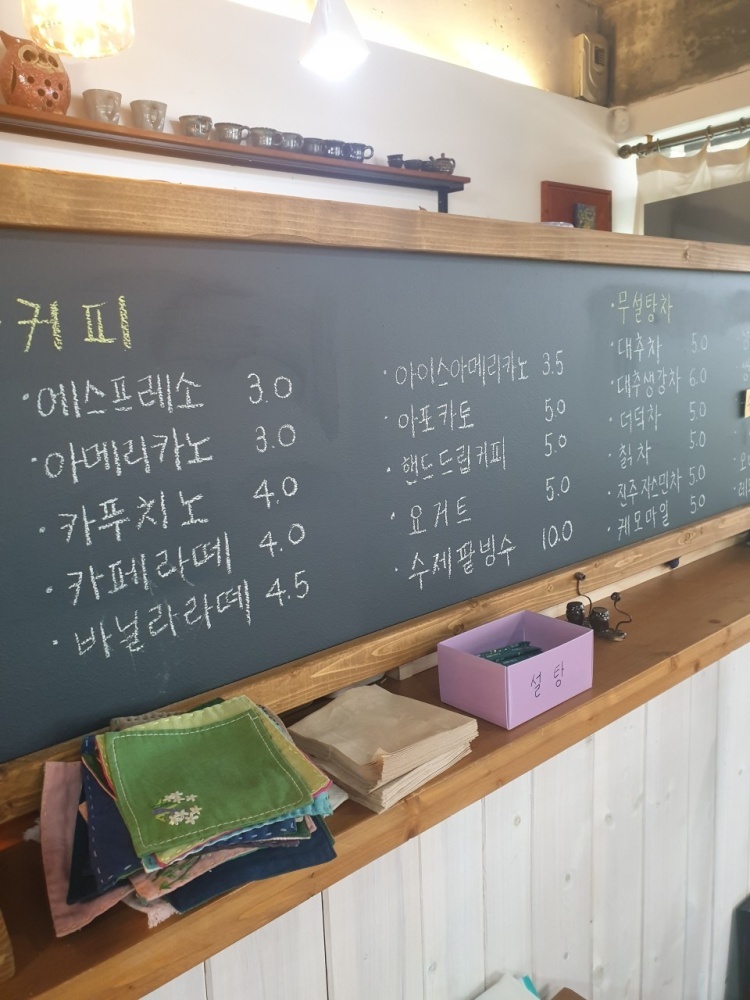 커피
· 에스프레소 3.0
· 아메리카노 3.0
· 카푸치노 4.0
· 카페라떼 4.0
· 바닐라라떼 4.5
· 아이스아메리카노 3.5
· 아포카토 5.0
· 핸드드립커피 5.0
· 요거트 5.0
· 수제팥빙수 10.0
· 무설탕차
· 대추차 5.0
· 대추생강차 6.0
· 더덕차 5.0
· 칡차 5.0
· 진주자스민차 5.0
· 케모마일 5.0
설탕